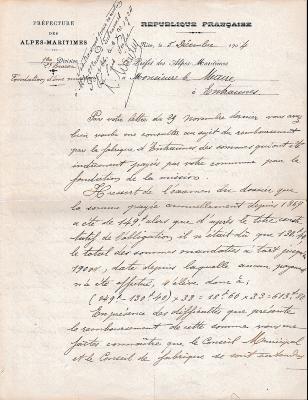 PRÉFECTURE
DES
ALPES-MARITIMES
RÉPUBLIQUE FRANÇAISE
Nice, le 5 Décembre 1904
Division
Préfet des Alpes-Maritimes
Monsieur le Maire
à Entraunes
Par votre lettre du 29 Novembre dernier vous avez
bien voulu me consulter au sujet du remboursement
par la fabrique d'Entraunes des sommes qui ont été
indûment payées par votre commune pour la
fondation de la mission.
Il ressort de l'examen du dossier que
la somme payée annuellement depuis 1869
a été de 149 alors que d'après le titre consti-
tutif de l'obligation il n'était dû que 130,40
le total des sommes mandatées à tort jusqu'à
date depuis laquelle aucun payement
n'a été effectué, s'élève donc à :
(149 - 130,40) × 33 = 18,60 × 33 = 613,80
En présence des difficultés que présente
le remboursement de cette somme vous me
faites connaître que le Conseil Municipal
et le Conseil de fabrique se sont entendus